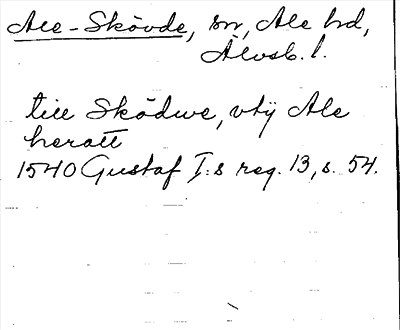 Ale-Skövde, sn, Ale hd,
Älvsb. l.
till Sködwe, vtij Ale
heratt
1540 Gustaf I:s reg. 13, s. 54.